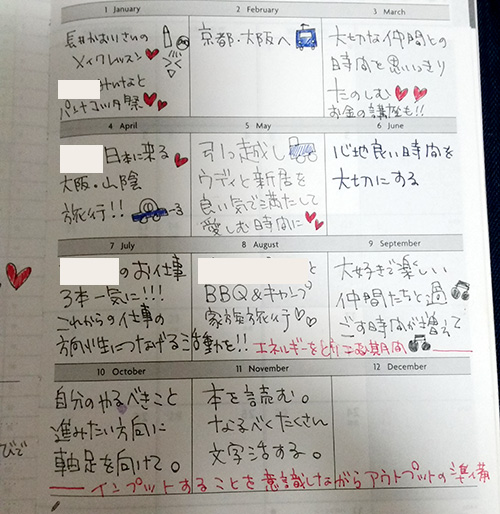 1 January
長井かおりさんの
メイクレッスン
みいなと
パンナコッタ祭
2 February
京都・大阪へ
3 March
大切な仲間との
時間を思いっきり
たのしむ
お金の講座も!!
4 April
日本に来る
大阪・山陰
旅行!!
5 May
引っ越し
ウディと新居を
良い気で満たして
愛しむ時間に
6 June
心地良い時間を
大切にする
7 July
のお仕事
3本一気に!!!
これからの仕事の
方向性につなげる活動を!!
8 August
と
BBQ&キャンプ
家族旅行
9 September
大好きで楽しい
仲間たちと過
ごす時間が増えて
エネルギーをとりこむ期間
10 October
自分のやるべきこと
進みたい方向に
軸足を向けて。
11 November
本を読む。
なるべくたくさん
文字活する。
12 December
インプットすることを意識しながらアウトプットの準備
びで